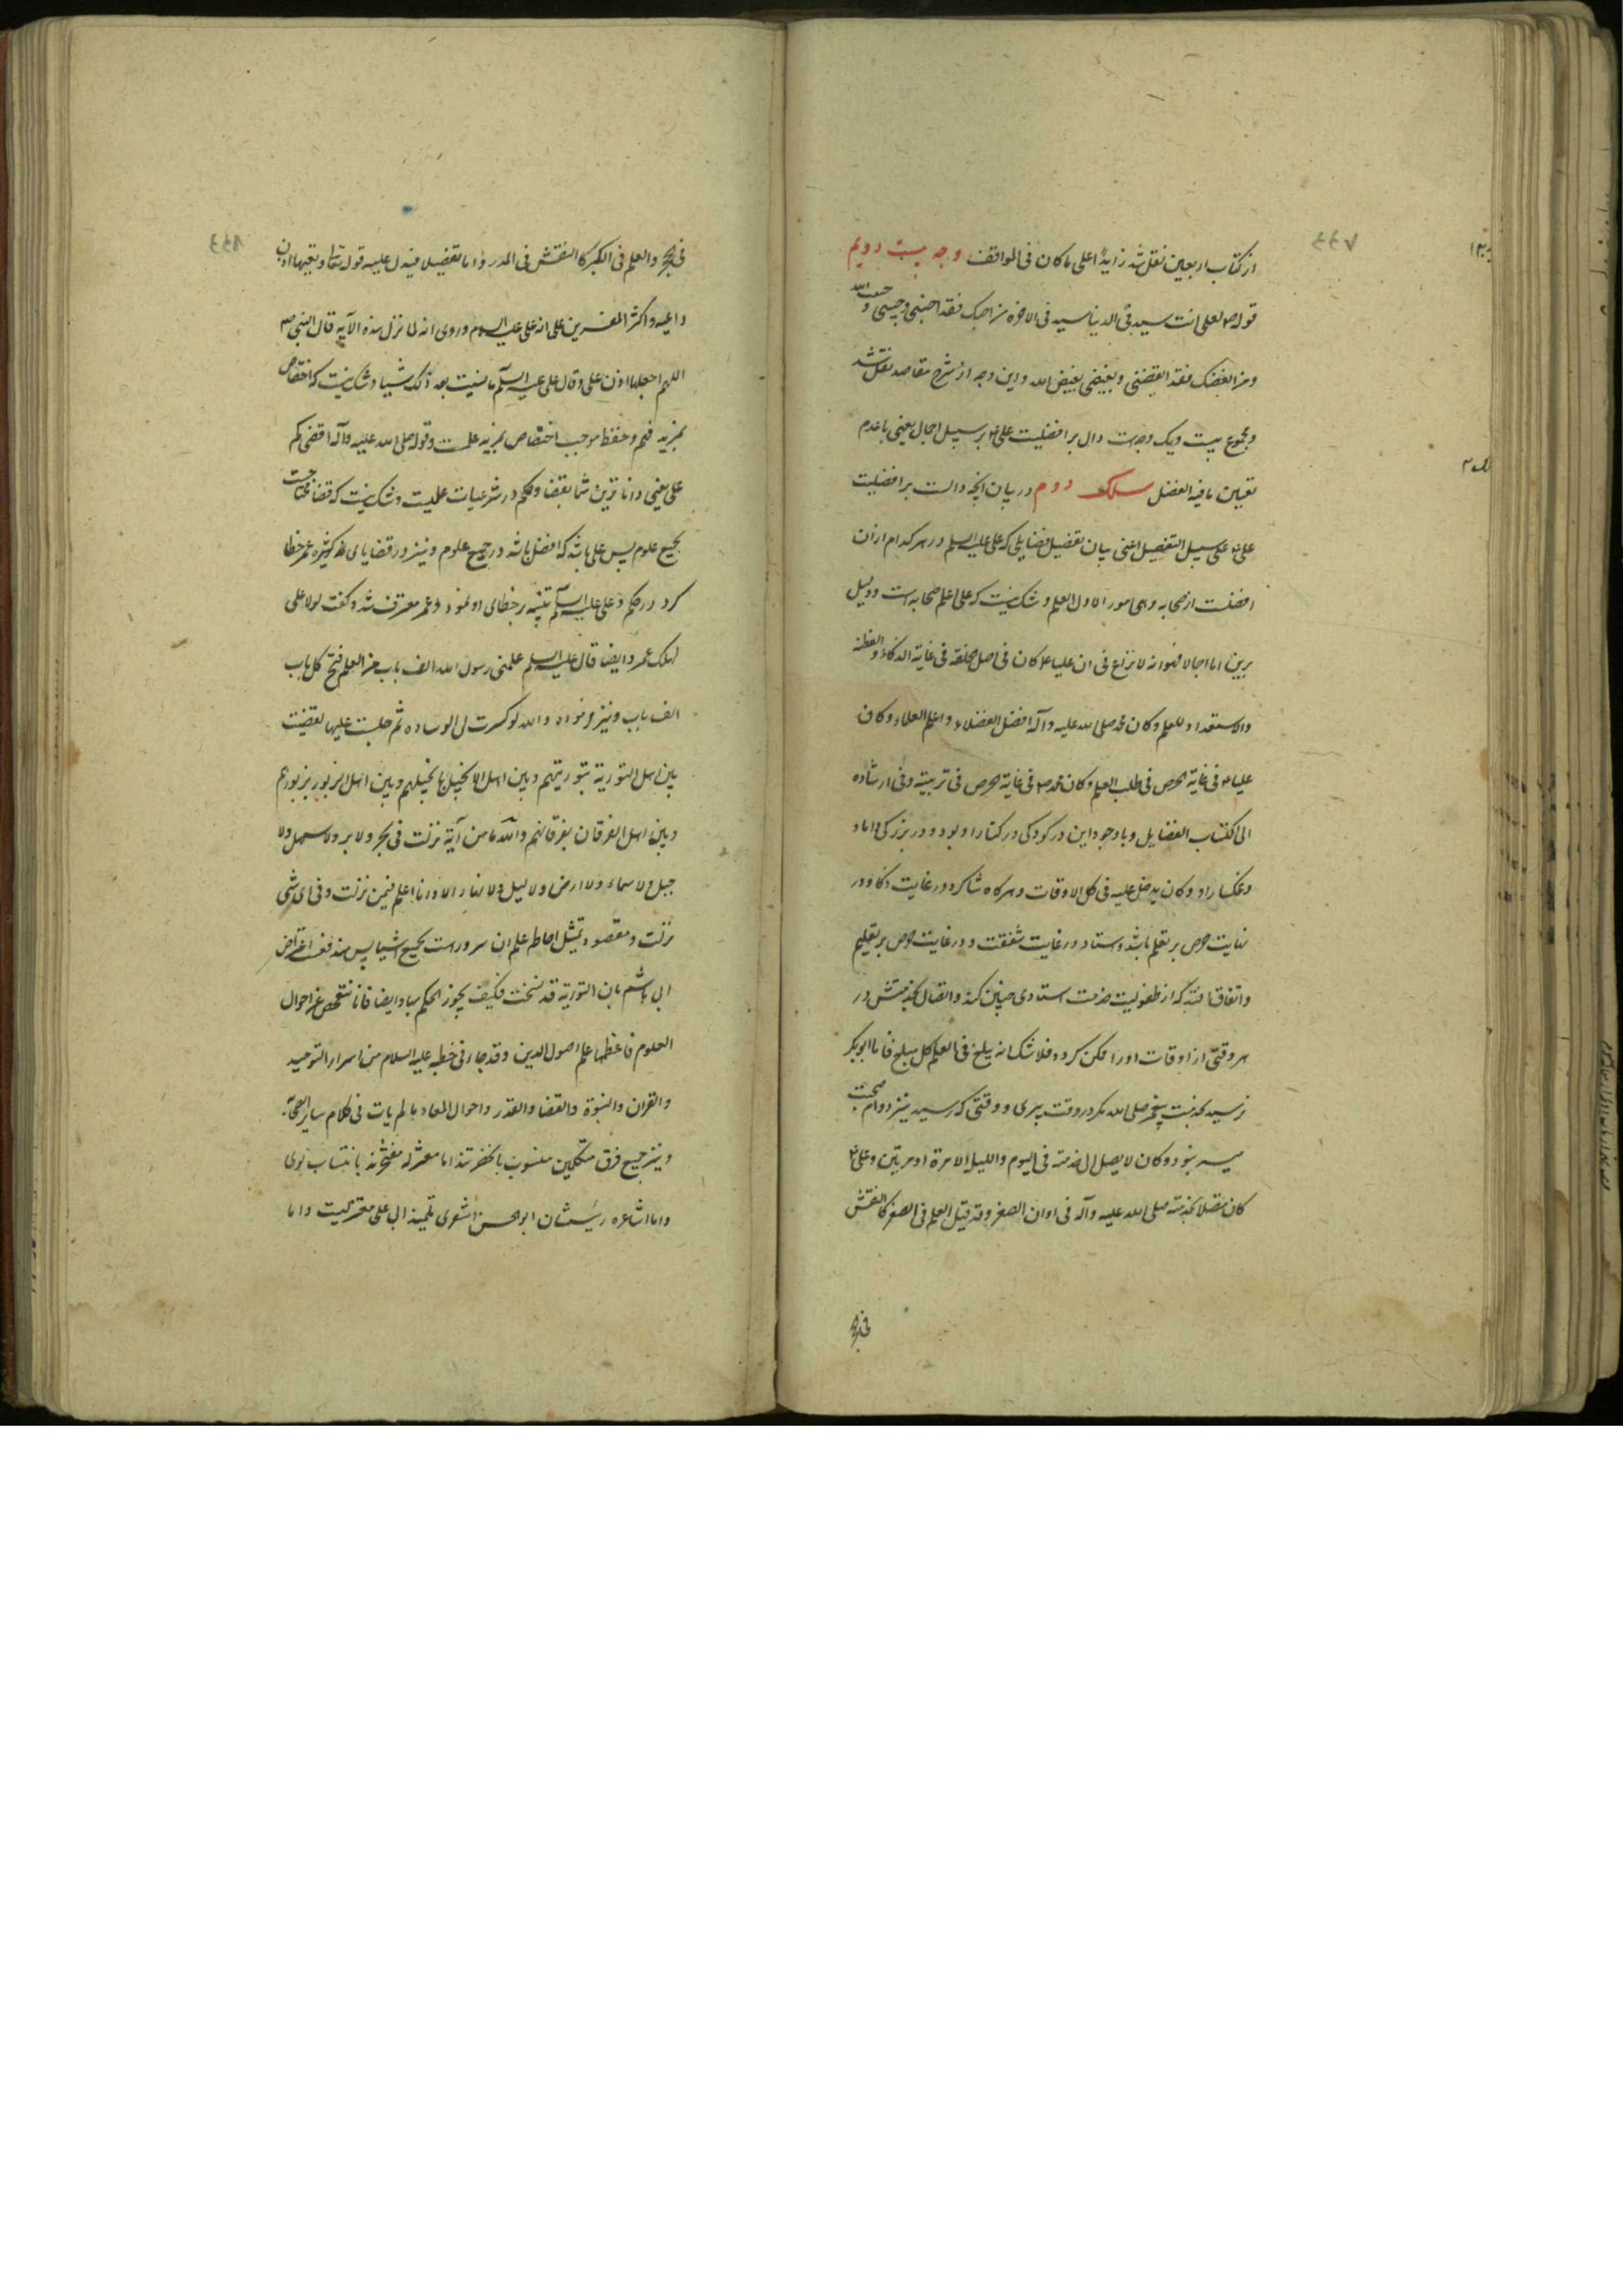 از کتاب اربعین نقل شد زایدا علی ما کان فی المواقف وجه بیست دویم
قوله ص لعلی انت سید فی الدنیا سید فی الاخرة من احبک فقد احبنی و حبیبی حبیب الله
و من ابغضک فقد ابغضنی و بغیضی بغیض الله و این وجه از شرح مقاصد نقل شد
و مجموع بیست و یک وجهست دال بر افضلیت علی ع بر سبیل اجمال یعنی با عدم
تعیین ما فیه الفضل سلک دوم در بیان آنچه دالست بر افضلیت
علی ع علی سبیل التفصیل اعنی بیان تفصیل فضایلی که علی علیه السلم در هر کدام از ان
افضلست از صحابه و هی امور الاول العلم و شک نیست که علی اعلم صحابه است و دلیل
برین اما اجمالا فهو انه لا نزاع فی ان علیا ع کان فی اصل الخلقة فی غایة الذکاء و الفطنة
والاستعداد للعلم و کان محمد صلی الله علیه وآله افضل الفضلاء و اعلم العلماء و کان
علیا ع فی غایة الحرص فی طلب العلم و کان محمد ص فی غایة الحرص فی تربیته و فی ارشاده
الی اکتساب الفضایل و با وجود این در کودکی در کنار او بود و در بزرکی داماد
و غمکسار او و کان یدخل علیه فی کل الاوقات و هرکاه شاکرد در غایت ذکا و در
نهایت حرص بر تعلم باشد و استاد در غایت شفقت و در غایت حرص بر تعلیم
و اتفاق افتد که از طفولیت خدمت استادی چنین کند و اتصال بخدمتش در
هر وقتی از اوقات اورا ممکن کردد فلا شک انه یبلغ فی العلم کل مبلغ فاما ابو بکر
نرسید بخدمت پیغمبر صلی الله مکر در وقت پیری و وقتی که رسید نیز دوام صحبت
میسر نبود و کان لا یصل الی خدمته فی الیوم واللیل الا مرة او مرتین و علی ع
کان متصلا بخدمته صلی الله علیه وآله فی اوان الصغر و قد قیل العلم فی الصغر کالنقش
فی الحجر
فی الحجر والعلم فی الکبر کالنقش فی المدر و اما تفصیلا فیدل علیه قوله تعالی و تعیها اذن
واعیه و اکثر المفسرین علی انه علی علیه السلام و روی انه لما نزل هذه الآیه قال النبی ص
اللهم اجعلها اذن علی و قال علی علیه السلم ما نسیت بعد ذلک شیئا و شک نیست که اختصاص
بمزید فهم و حفظ موجب اختصاص بمزید علمست و قوله صلی الله علیه وآله اقضی کم
علی یعنی داناترین شما بقضا و حکم در شرعیات علیست و شک نیست که قضا محتاجست
بجمیع علوم پس علی باشد که افضل باشد در جمیع علوم و نیز در قضایای کثیره عمر خطا
کرد در حکم و علی علیه السلم تنبیه بر خطای او نمود و عمر معترف شد و کفت لولا علی
لهلک عمر و ایضا قال علیه السلم علمنی رسول الله الف باب من العلم فتح کل باب
الف باب و نیز فرموده والله لو کسرت لی الوساده ثم جلست علیها لقضیت
بین اهل التوریة بتوریتهم و بین اهل الانجیل بانجیلهم و بین اهل الزبور بزبورهم
و بین اهل الفرقان بفرقانهم والله ما من آیة نزلت فی بحر ولا بر ولا سهل ولا
جبل ولا سماء ولا ارض ولا لیل ولا نهار الا وانا اعلم فیمن نزلت و فی ای شی
نزلت و مقصود تمثیل احاطه علم ان سرورست بجمیع اشیا پس مندفعست اعتراض
ابی هاشم بان التوریة قد نسخت فکیف یجوز الحکم بها و ایضا فانا نتفحص عن احوال
العلوم فاعظمها علم اصول الدین و قد جاء فی خطبه علیه السلام من اسرار التوحید
والقران والنبوة والقضا والقدر و احوال المعاد ما لم یات فی کلام سایر الصحابة
و نیز جمیع فرق متکلمین منسوب بانحضرتند اما معتزله مفتخرند بانتساب بوی
و اما اشاعره رئیسشان ابو الحسن اشعری تلمیذ ابی علی معتزلیست و اما